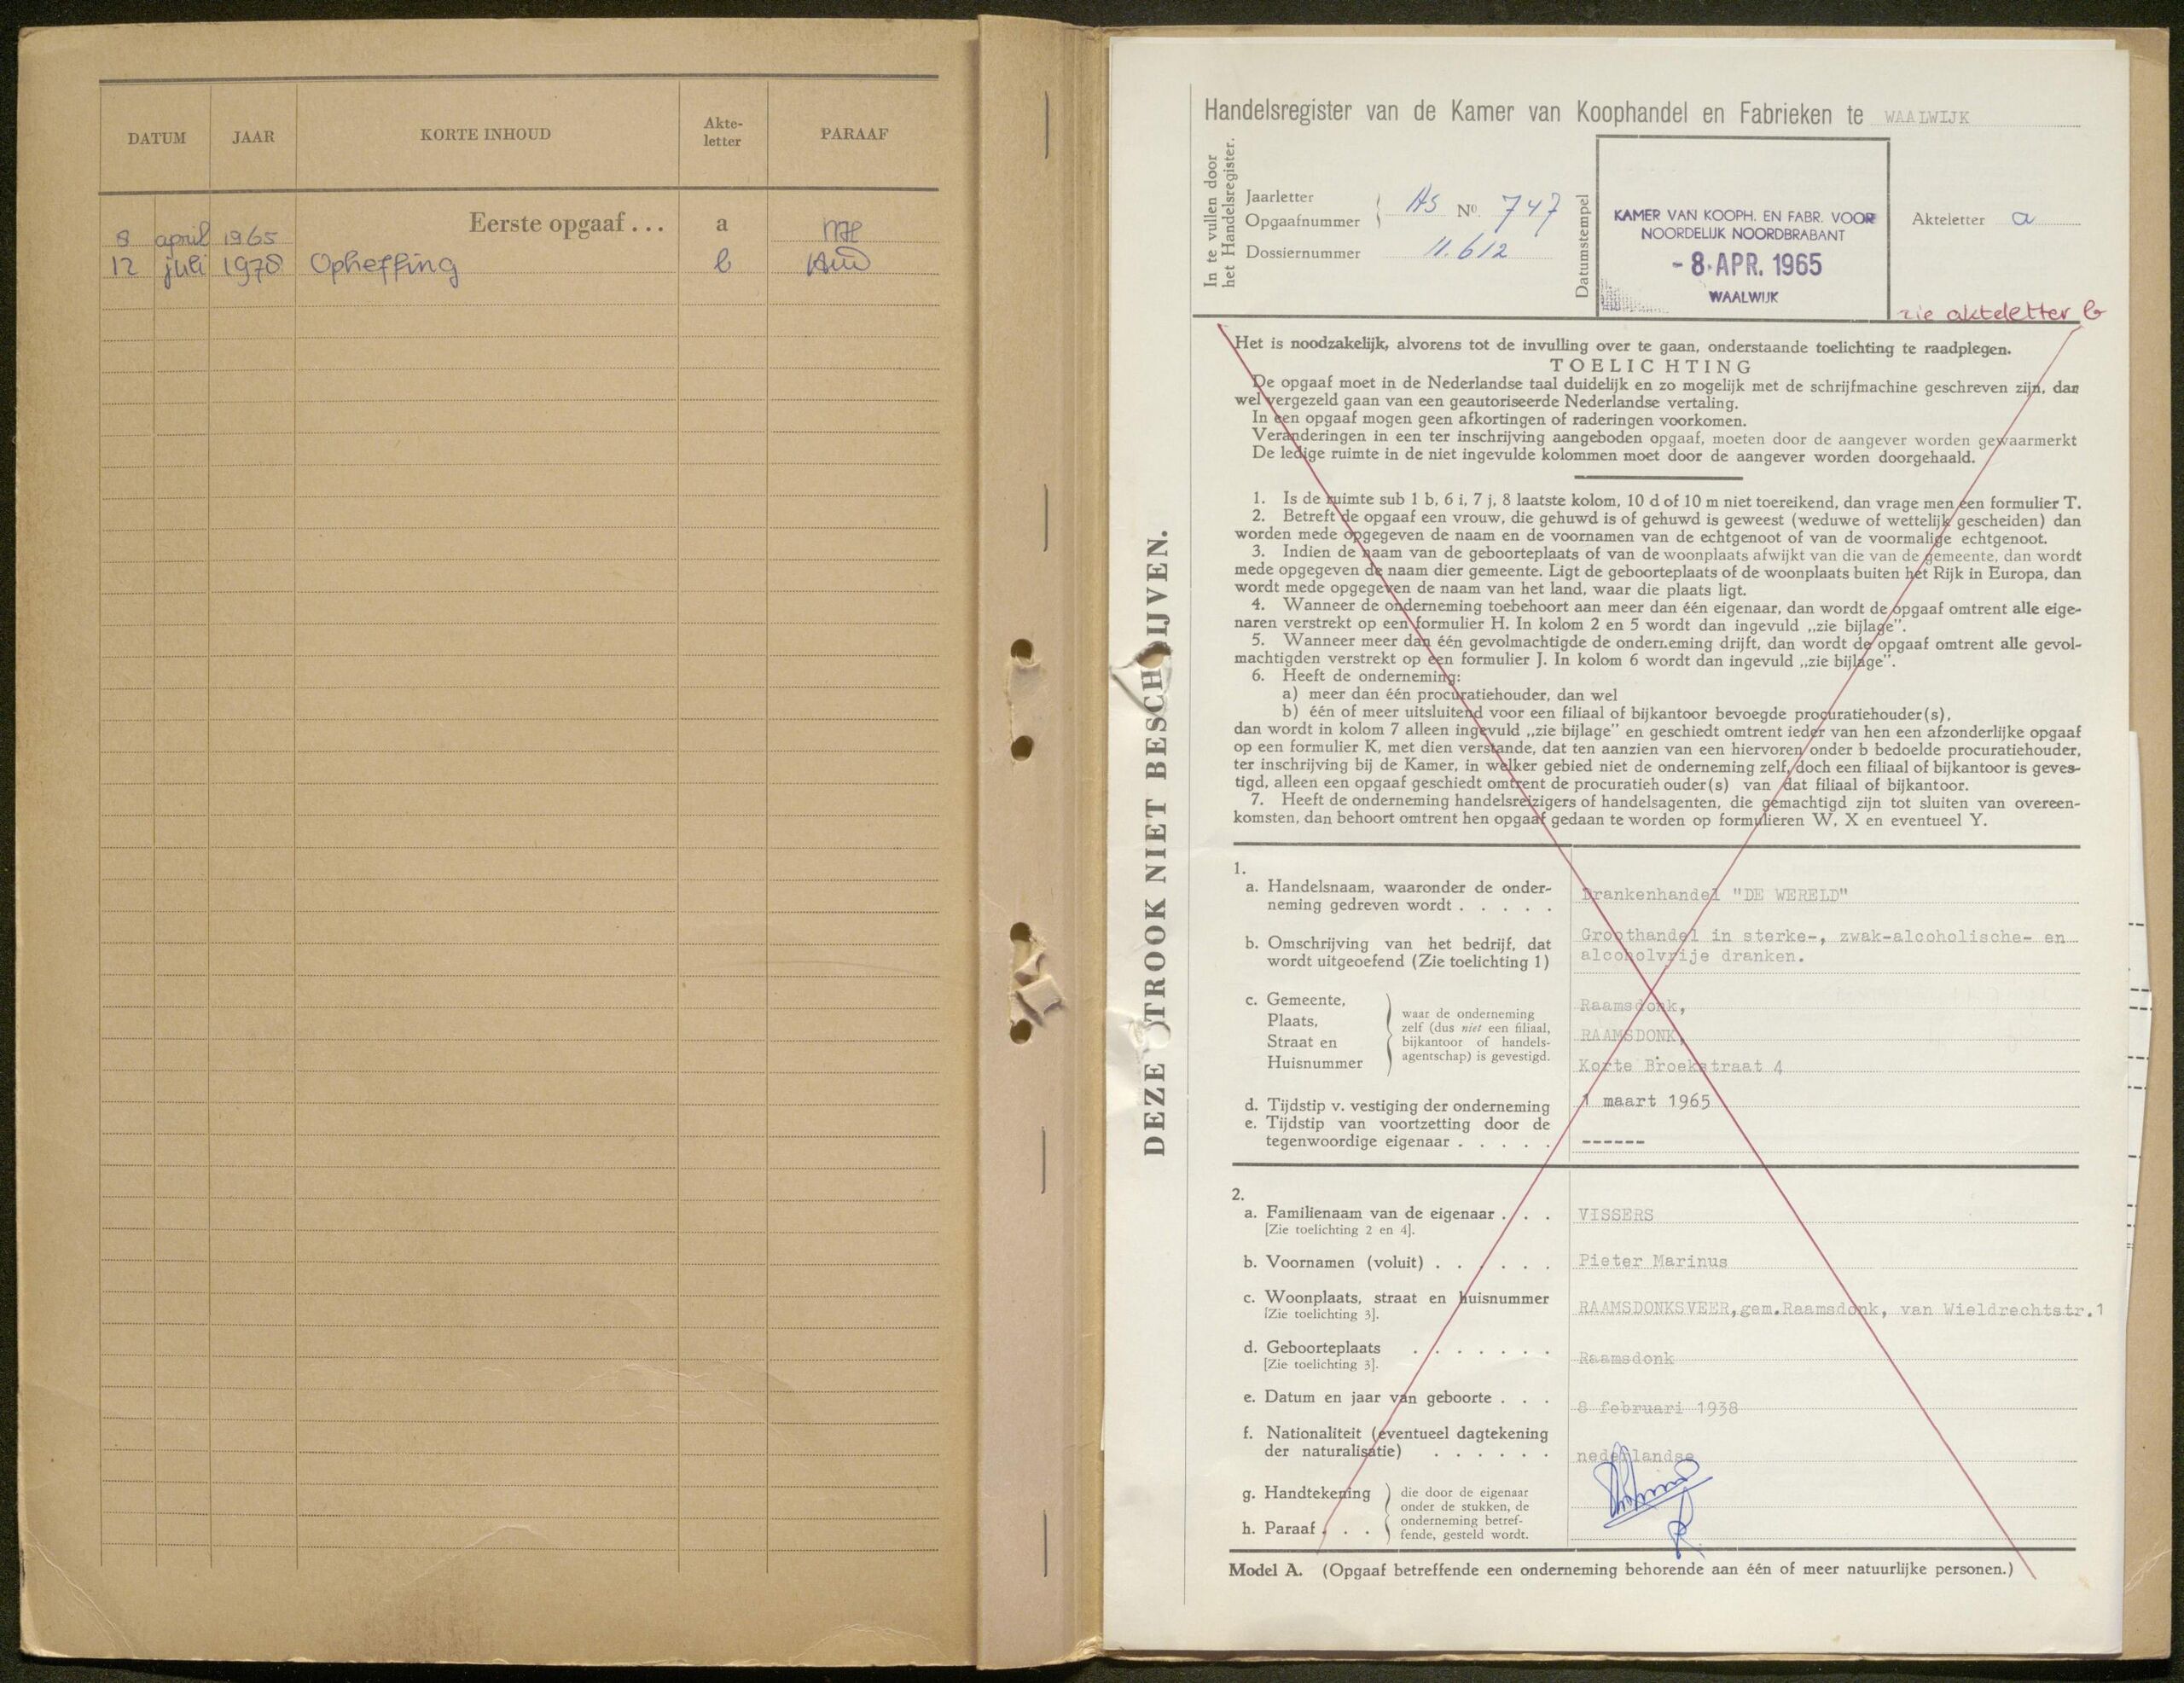 DATUM JAAR KORTE INHOUD Akte-letter PARAAF
8 april 1965 Eerste opgaaf ... a
12 juli 1978 Opheffing b
DEZE STROOK NIET BESCHRIJVEN.
Handelsregister van de Kamer van Koophandel en Fabrieken te WAALWIJK
In te vullen door
het Handelsregister.
Jaarletter
Opgaafnummer
As No. 747
Dossiernummer 11.612
Datumstempel
KAMER VAN KOOPH. EN FABR. VOOR
NOORDELIJK NOORDBRABANT
- 8. APR. 1965
WAALWIJK
Akteletter a
zie akteletter b
Het is noodzakelijk, alvorens tot de invulling over te gaan, onderstaande toelichting te raadplegen.
TOELICHTING
De opgaaf moet in de Nederlandse taal duidelijk en zo mogelijk met de schrijfmachine geschreven zijn, dan
wel vergezeld gaan van een geautoriseerde Nederlandse vertaling.
In een opgaaf mogen geen afkortingen of raderingen voorkomen.
Veranderingen in een ter inschrijving aangeboden opgaaf, moeten door de aangever worden gewaarmerkt
De ledige ruimte in de niet ingevulde kolommen moet door de aangever worden doorgehaald.
1. Is de ruimte sub 1 b, 6 i, 7 j, 8 laatste kolom, 10 d of 10 m niet toereikend, dan vrage men een formulier T.
2. Betreft de opgaaf een vrouw, die gehuwd is of gehuwd is geweest (weduwe of wettelijk gescheiden) dan
worden mede opgegeven de naam en de voornamen van de echtgenoot of van de voormalige echtgenoot.
3. Indien de naam van de geboorteplaats of van de woonplaats afwijkt van die van de gemeente, dan wordt
mede opgegeven de naam dier gemeente. Ligt de geboorteplaats of de woonplaats buiten het Rijk in Europa, dan
wordt mede opgegeven de naam van het land, waar die plaats ligt.
4. Wanneer de onderneming toebehoort aan meer dan één eigenaar, dan wordt de opgaaf omtrent alle eige-
naren verstrekt op een formulier H. In kolom 2 en 5 wordt dan ingevuld „zie bijlage”.
5. Wanneer meer dan één gevolmachtigde de onderneming drijft, dan wordt de opgaaf omtrent alle gevol-
machtigden verstrekt op een formulier J. In kolom 6 wordt dan ingevuld „zie bijlage”.
6. Heeft de onderneming:
a) meer dan één procuratiehouder, dan wel
b) één of meer uitsluitend voor een filiaal of bijkantoor bevoegde procuratiehouder(s),
dan wordt in kolom 7 alleen ingevuld „zie bijlage” en geschiedt omtrent ieder van hen een afzonderlijke opgaaf
op een formulier K, met dien verstande, dat ten aanzien van een hiervoren onder b bedoelde procuratiehouder,
ter inschrijving bij de Kamer, in welker gebied niet de onderneming zelf, doch een filiaal of bijkantoor is geves-
tigd, alleen een opgaaf geschiedt omtrent de procuratieh ouder(s) van dat filiaal of bijkantoor.
7. Heeft de onderneming handelsreizigers of handelsagenten, die gemachtigd zijn tot sluiten van overeen-
komsten, dan behoort omtrent hen opgaaf gedaan te worden op formulieren W, X en eventueel Y.
1.
a. Handelsnaam, waaronder de onder-
neming gedreven wordt . . . . .
Drankenhandel "DE WERELD"
b. Omschrijving van het bedrijf, dat
wordt uitgeoefend (Zie toelichting 1)
Groothandel in sterke-, zwak-alcoholische- en
alcoholvrije dranken.
c. Gemeente,
Plaats,
Straat en
Huisnummer
waar de onderneming
zelf (dus niet een filiaal,
bijkantoor of handels-
agentschap) is gevestigd.
Raamsdonk,
RAAMSDONK,
Korte Broekstraat 4
d. Tijdstip v. vestiging der onderneming
1 maart 1965
e. Tijdstip van voortzetting door de
tegenwoordige eigenaar . . . . .
------
2.
a. Familienaam van de eigenaar . . .
[Zie toelichting 2 en 4].
VISSERS
b. Voornamen (voluit) . . . . . .
Pieter Marinus
c. Woonplaats, straat en huisnummer
[Zie toelichting 3].
RAAMSDONKSVEER,gem.Raamsdonk, van Wieldrechtstr.1
d. Geboorteplaats . . . . . . .
[Zie toelichting 3].
Raamsdonk
e. Datum en jaar van geboorte . . .
8 februari 1938
f. Nationaliteit (eventueel dagtekening
der naturalisatie) . . . . . .
nederlandse
g. Handtekening
h. Paraaf . . .
die door de eigenaar
onder de stukken, de
onderneming betref-
fende, gesteld wordt.
Model A. (Opgaaf betreffende een onderneming behorende aan één of meer natuurlijke personen.)